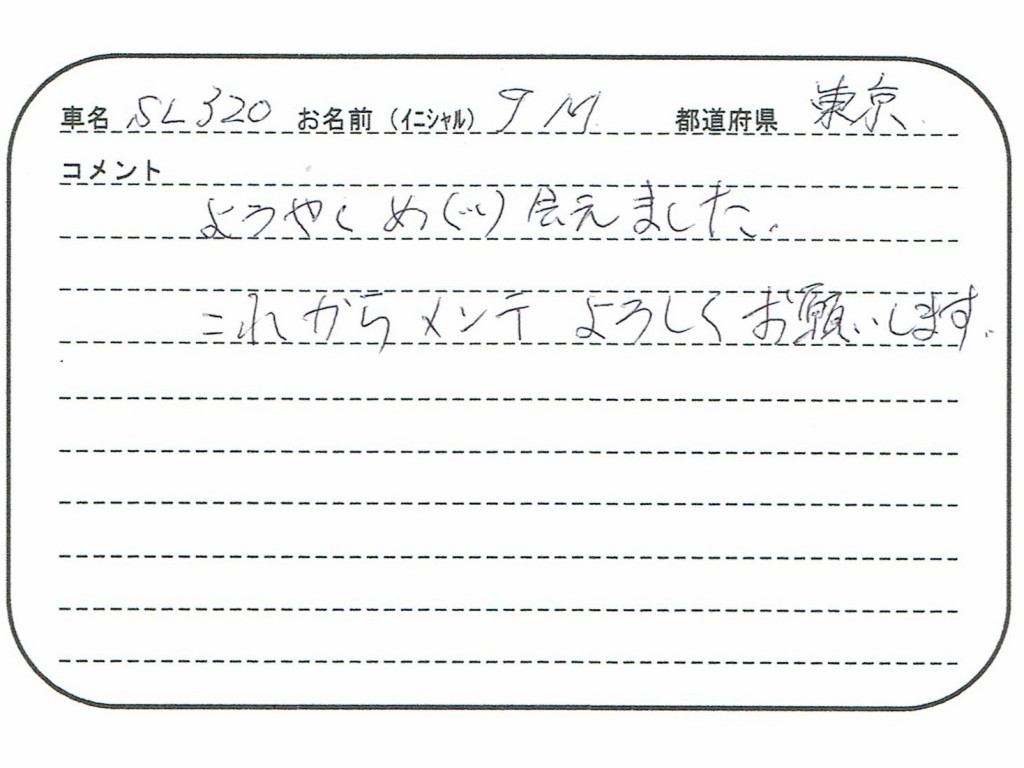 車名 SL320 お名前（イニシャル） T M. 都道府県 東京
コメント
ようやくめぐり会えました.
これからメンテ よろしくお願いします.